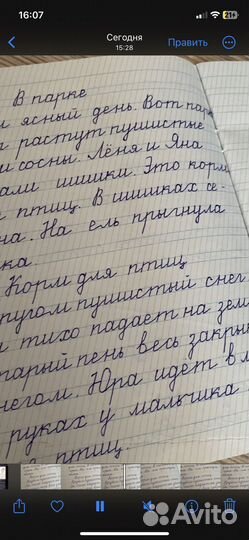 16:07
Сегодня
15:28
Править
В парке
ясный день. Вот парк
растут пушистые
и сосны. Лёня и Яна
шишки. Это корм
птиц. В шишках се-
На ель прыгнула
Корм для птиц
пушистый снег
тихо падает на
пень весь
Юра идет в
руках у мальчика
птиц.
Avito